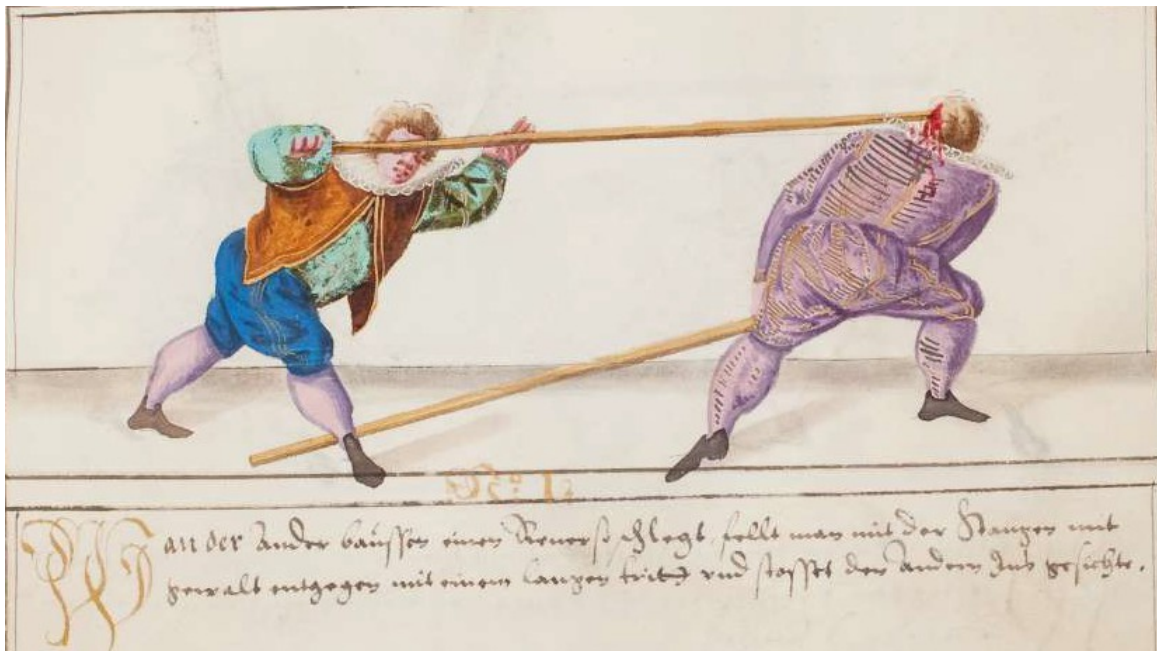 No 12
Wan der Ander baussen einen Reuerso schlegt, fellt man mit der Stangen mit
gewalt entgegen mit einem langen tritt vnd stosset den Andern Ins gesichte.